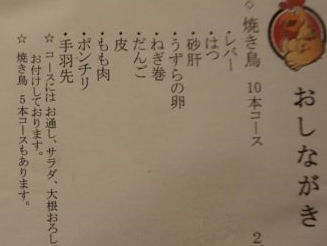 おしながき
◇ 焼き鳥 10本コース 2
・レバー
・はつ
・砂肝
・うずらの卵
・ねぎ巻
・だんご
・皮
・もも肉
・ボンチリ
・手羽先
☆ コースには お通し、サラダ、大根おろし
お付けしております。
☆ 焼き鳥 5本コースもあります。